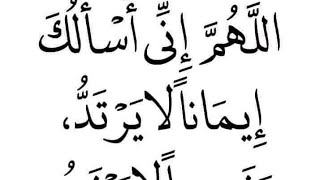 اللَّهُمَّ إِنِّى أَسْأَلُكَ
إِيمَانًا لَا يَرْتَدُّ،